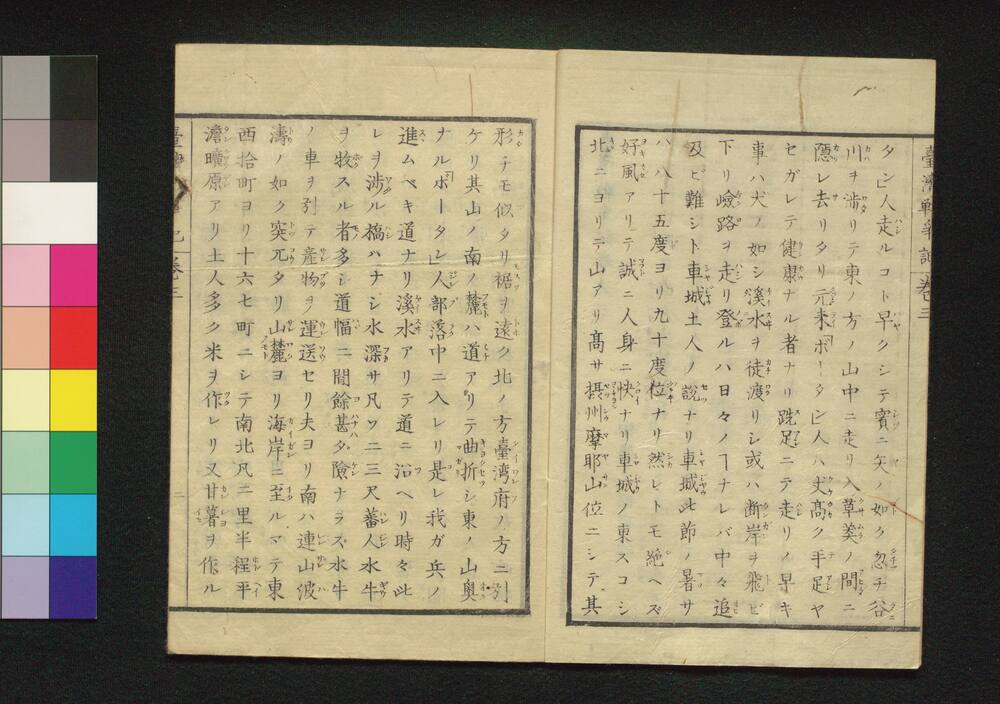 臺灣戰争記 卷三
タン」人走ルコト早クシテ實ニ矢ノ如ク忽チ谷
川ヲ渉リテ東ノ方ノ山中ニ走リ入草美ノ間ニ
隱レ去リタリ元来ボータン」人ハ丈髙ク手足ヤ
セガレテ健康ナル者ナリ跣足ニテ走リノ早キ
事ハ犬ノ如シ溪水ヲ徒渡リシ或ハ断岸ヲ飛ビ
下リ嶮路ヲ走リ登ルハ日々ノヿナレバ中々追
及ビ難シト車城土人ノ說ナリ車城此節ノ暑サ
ハ八十五度ヨリ九十度位ナリ然レトモ絶ヘズ
好風アリテ誠ニ人身ニ快ナリ車城ノ東スコシ
北ニヨリテ山アリ髙サ摂州摩耶山位ニシテ其
形チモ似タリ裾ヲ遠ク北ノ方臺湾府ノ方ニ引
ケリ其山ノ南ノ麓ハ道アリテ曲折シ東ノ山奥
ナルボータン」人部落中ニ入レリ是レ我ガ兵ノ
進ムベキ道ナリ溪水アリテ道ニ沿ヘリ時々此
レヲ渉ル橋ハナシ水深サ凡ソ二三尺蕃人水牛
ヲ牧スル者多シ道幅二間餘甚タ險ナラス水牛
ノ車ヲ引テ産物ヲ運送セリ夫ヨリ南ハ連山波
濤ノ如ク突兀タリ山麓ヨリ海岸ニ至ルマテ東
西拾町ヨリ十六七町ニシテ南北凡二里半程平
澹曠原アリ土人多ク米ヲ作レリ又甘藷ヲ作ル